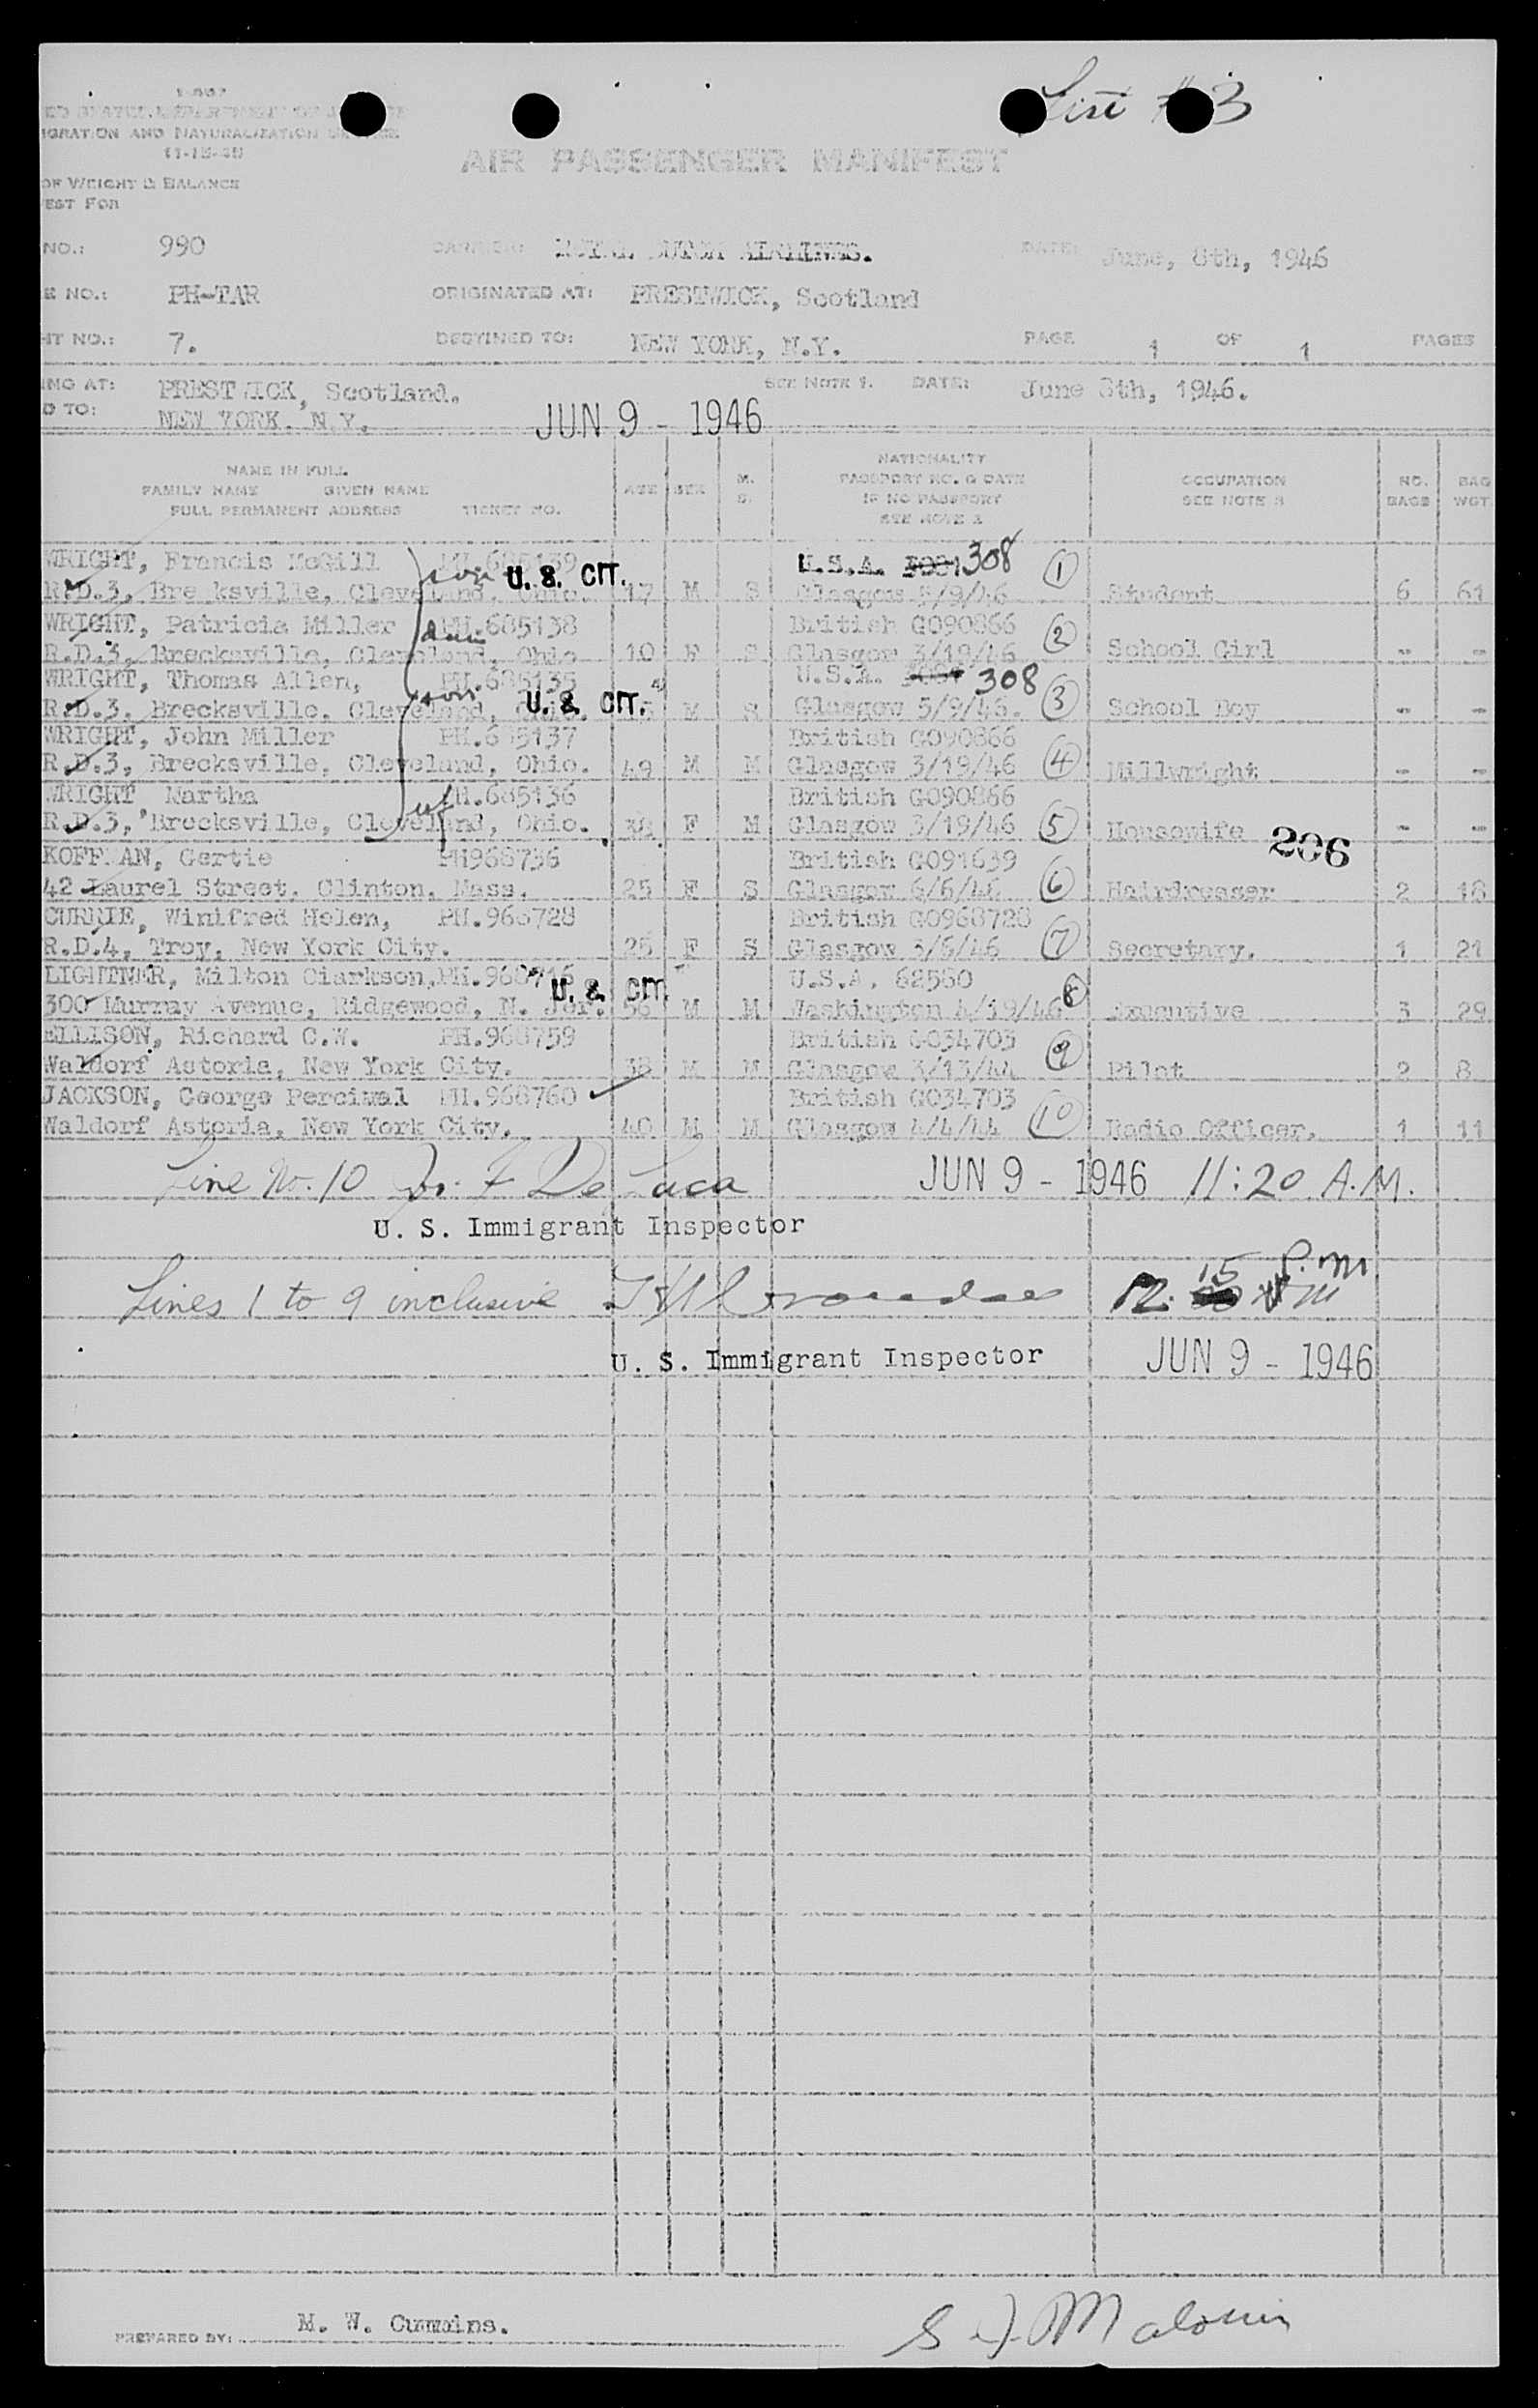 List # 3
I-467
ED STATES DEPARTMENT OF JUSTICE
IGRATION AND NATURALIZATION SERVICE
11-15-45
AIR PASSENGER MANIFEST
OF WEIGHT & BALANCE
EST FOR
NO.: 990 CARRIER: ROYAL DUTCH AIRLINES. DATE: June, 8th, 1946
E NO.: PH-TAR ORIGINATED AT: PRESTWICK, Scotland
HT NO.: 7. DESTINED TO: NEW YORK, N.Y. PAGE 1 OF 1 PAGES
ING AT: PRESTWICK, Scotland. SEE NOTE 1. DATE: June 8th, 1946.
D TO: NEW YORK, N.Y. JUN 9 - 1946
NAME IN FULL
FAMILY NAME GIVEN NAME
FULL PERMANENT ADDRESS TICKET NO. AGE SEX M. S. NATIONALITY PASSPORT NO. & DATE IF NO PASSPORT SEE NOTE 2 OCCUPATION SEE NOTE 3 NO. BAGS BAG WGT.
WRIGHT, Francis McGill PH.685139 son U. S. CIT. U.S.A. 308 1
R.D.3, Bre ksville, Cleveland, Ohio. 17 M S Glasgow 5/9/46 Student 6 61
WRIGHT, Patricia Miller PH.685138 British G090866 2
R.D.3, Brecksville, Cleveland, Ohio 10 F S Glasgow 3/19/46 School Girl - -
WRIGHT, Thomas Allen, PH.685135 son U. S. CIT. U.S.A. 308 3
R.D.3, Brecksville, Cleveland, Ohio. M S Glasgow 5/9/46. School Boy - -
WRIGHT, John Miller PH.685137 British G090866
R.D.3, Brecksville, Cleveland, Ohio. 49 M M Glasgow 3/19/46 4 Millwright - -
WRIGHT, Martha PH.685136 wf British G090866
R.D.3, Brecksville, Cleveland, Ohio. 38 F M Glasgow 3/19/46 5 Housewife - -
206
KOFFMAN, Gertie PH968736 British G091639
42 Laurel Street, Clinton, Mass. 25 F S Glasgow 6/6/46 6 Hairdresser 2 18
CURRIE, Winifred Helen, PH.968728 British G0968728
R.D.4, Troy, New York City. 25 F S Glasgow 3/6/46 7 Secretary. 1 21
LIGHTNER, Milton Clarkson, PH.968716 U. S. CIT. U.S.A. 62550
300 Murray Avenue, Ridgewood, N. Jer. 56 M M Washington 4/19/46 8 Executive 3 29
ELLISON, Richard C.W. PH.968759 British G034703
Waldorf Astoria, New York City. 38 M M Glasgow 3/13/44 9 Pilot 2 8
JACKSON, George Percival PH.968760 British G034703
Waldorf Astoria, New York City. 40 M M Glasgow 4/4/44 10 Radio Officer. 1 11
Line No. 10 De Luca JUN 9 - 1946 11:20 A.M.
U. S. Immigrant Inspector
Lines 1 to 9 inclusive 12. 15 P.m
U. S. Immigrant Inspector JUN 9 - 1946
PREPARED BY: M. W. Cummins.